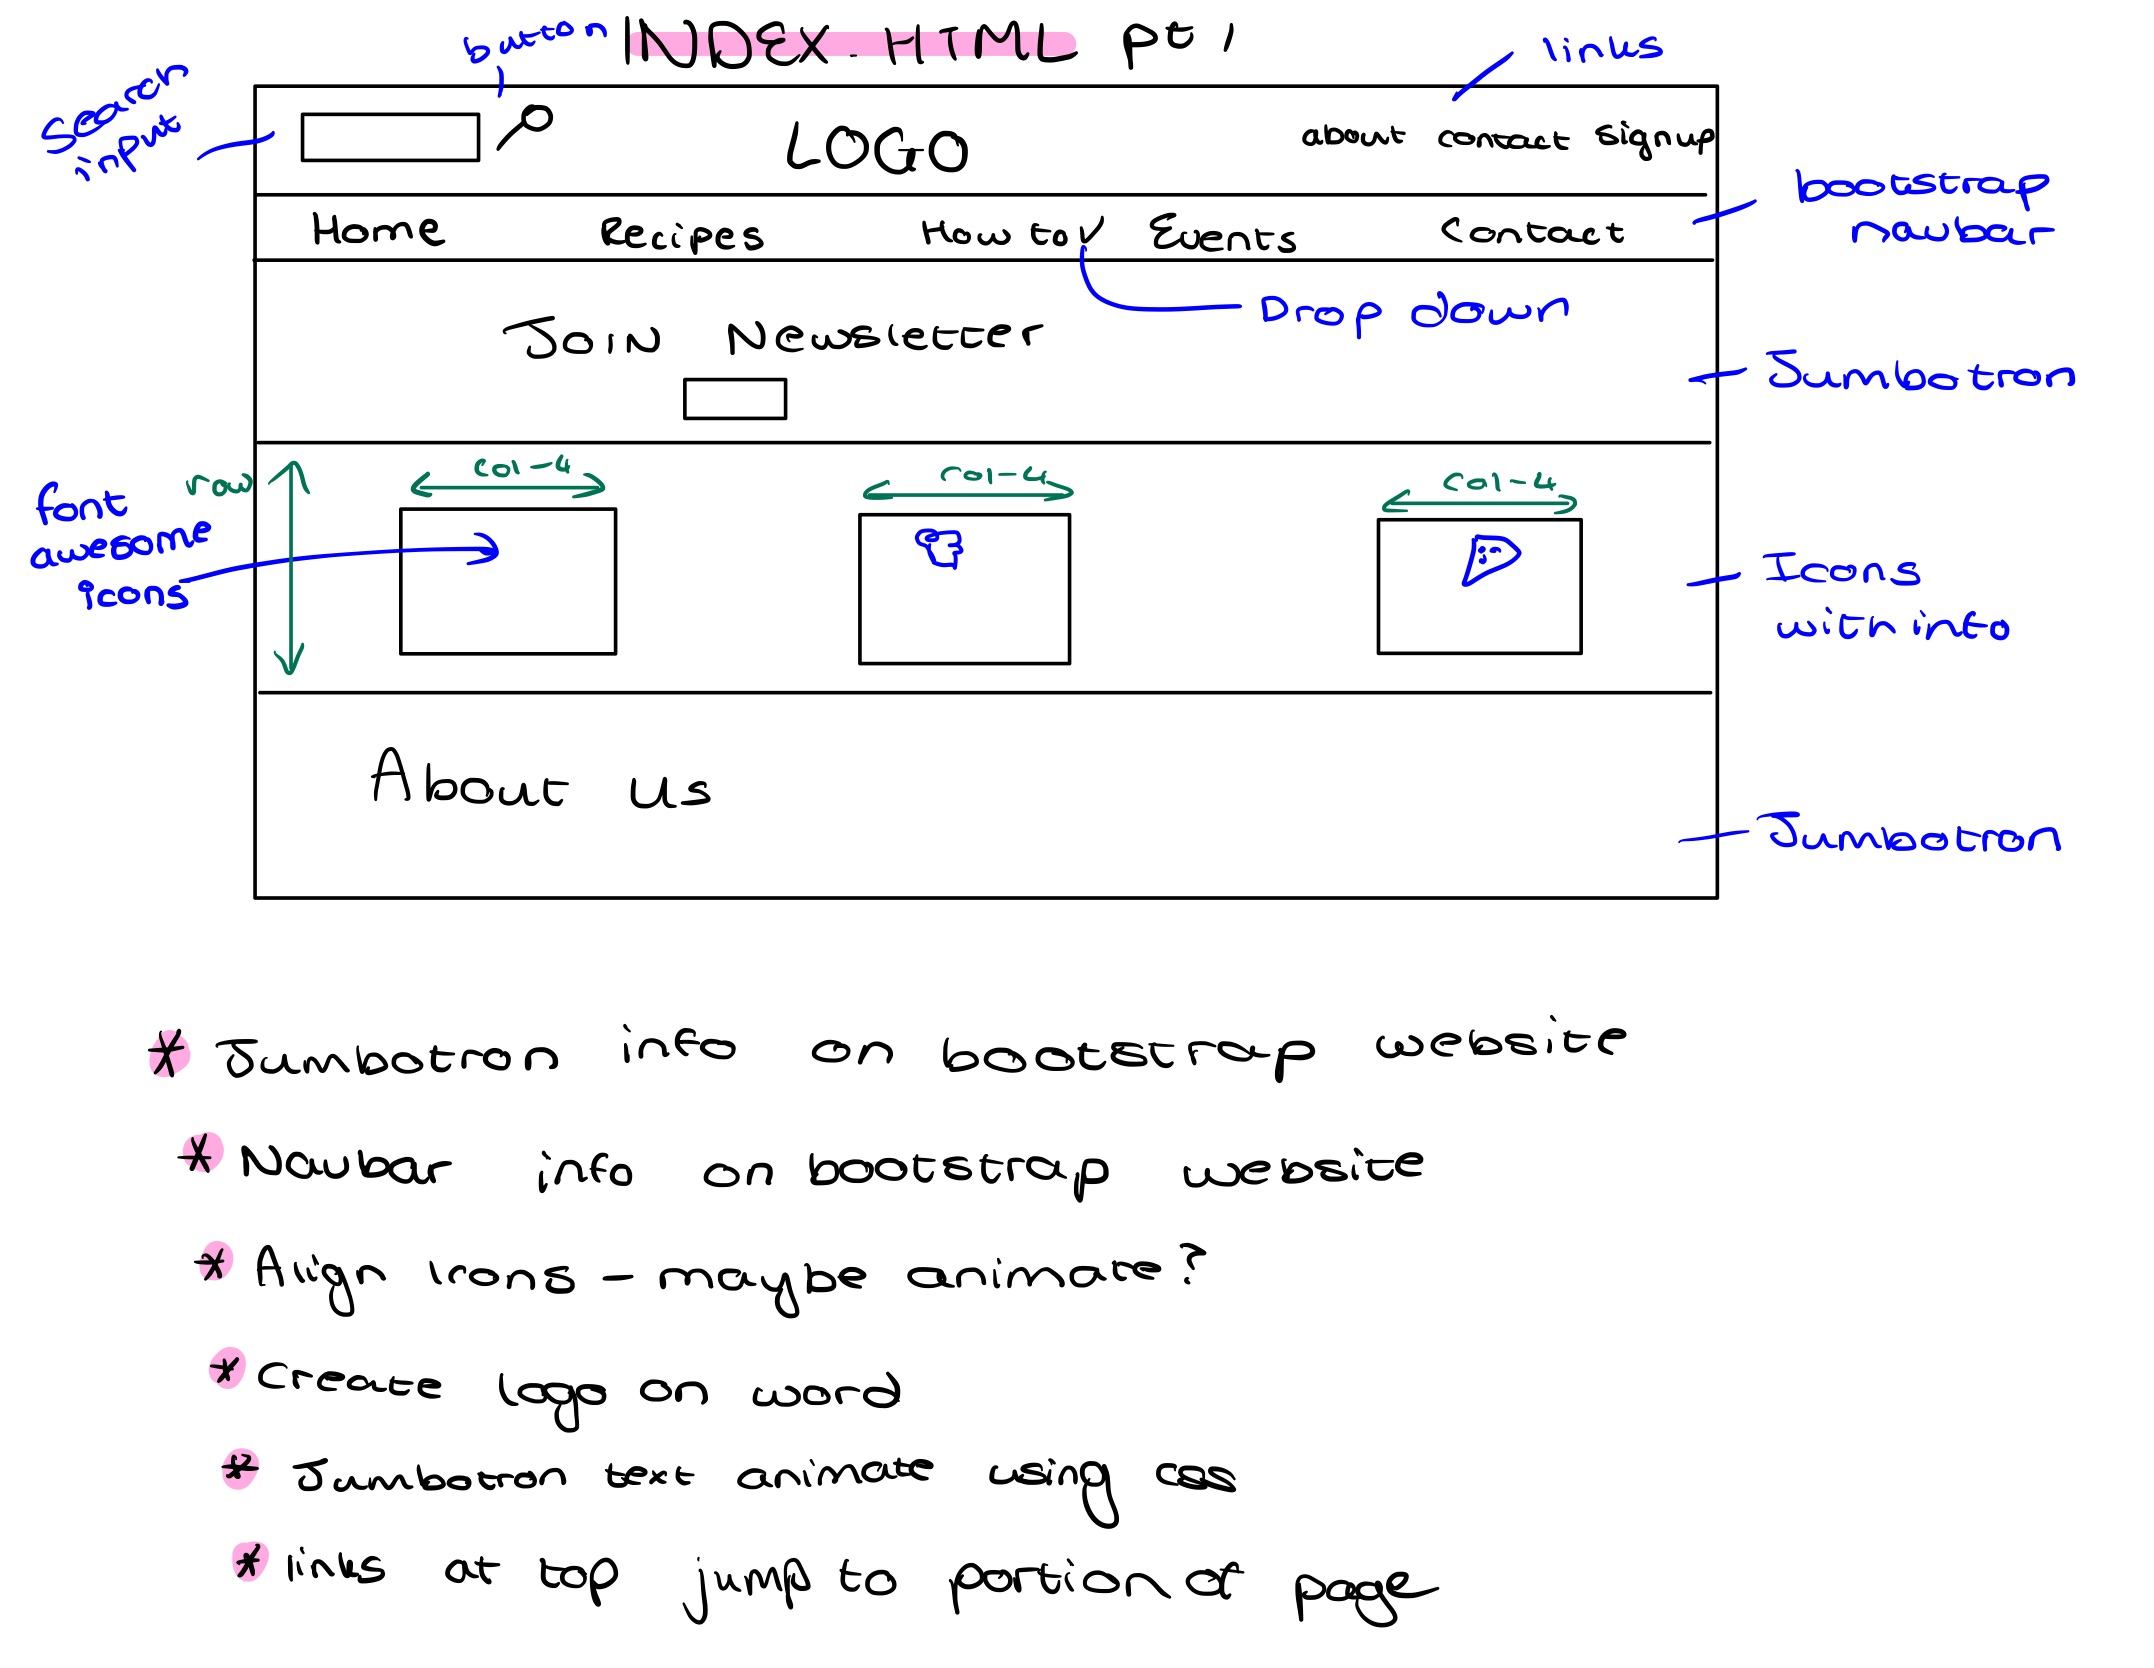 INDEX.HTML pt 1
button
links
Search
input
LOGO
about contact signup
bootstrap
navbar
Home Recipes How to Events Contact
Drop down
Join Newsletter
Jumbotron
row
col-4 col-4 col-4
font
awesome
icons
Icons
with info
About Us
Jumbotron
* Jumbotron info on bootstrap website
* Navbar info on bootstrap website
* Align Icons - maybe animate?
* Create logo on word
* Jumbotron text animate using css
* links at top jump to portion of page